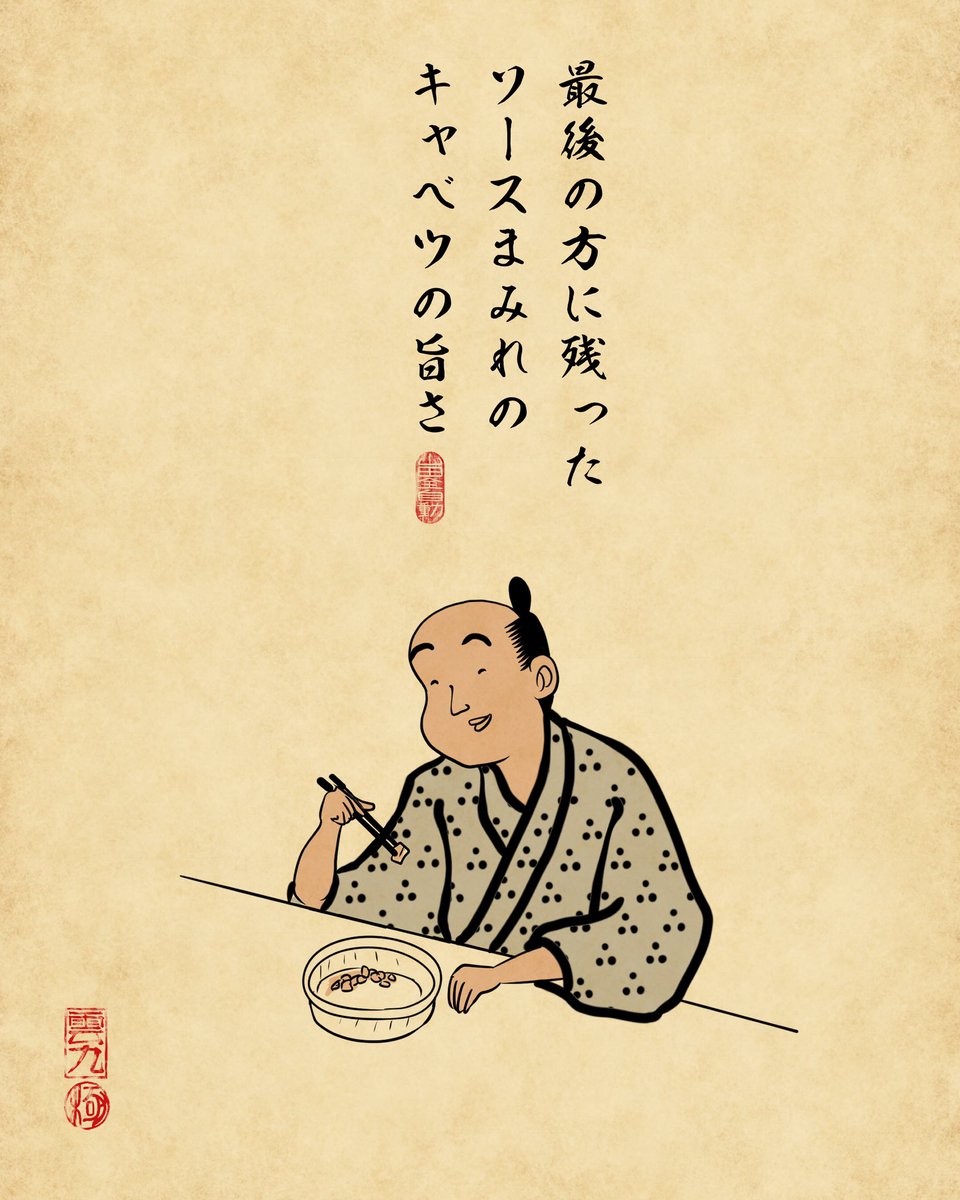 最後の方に残った
ソースまみれの
キャベツの旨さ